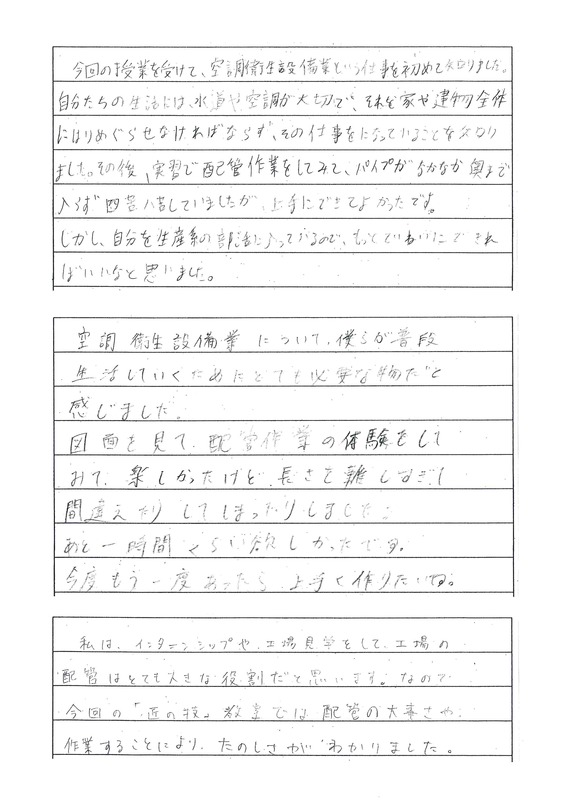 今回の授業を受けて、空調衛生設備業という仕事を初めて知りました。
自分たちの生活には、水道や空調が大切で、それを家や建物全体
にはりめぐらせなければならず、その仕事をになっていることを知り
ました。その後、実習で配管作業をしてみて、パイプがなかなか奥まで
入らず四苦八苦していましたが、上手にできてよかったです。
しかし、自分を生産系の部活に入っているので、もっとていねいにできれ
ばいいなと思いました。
空調衛生設備業について、僕らが普段
生活していくためにとても必要な物だと
感じました。
図面を見て、配管作業の体験をして
みて、楽しかったけど、長さを難しなぎ
間違えたりしてしまったりしました。
あと一時間くらい欲しかったです。
今度もう一度あったら上手く作りたいです。
私は、インターンシップや、工場見学をして、工場の
配管はとても大きな役割だと思います。なので
今回の「匠の技」教室では配管の大事さや、
作業することにより、たのしさがわかりました。